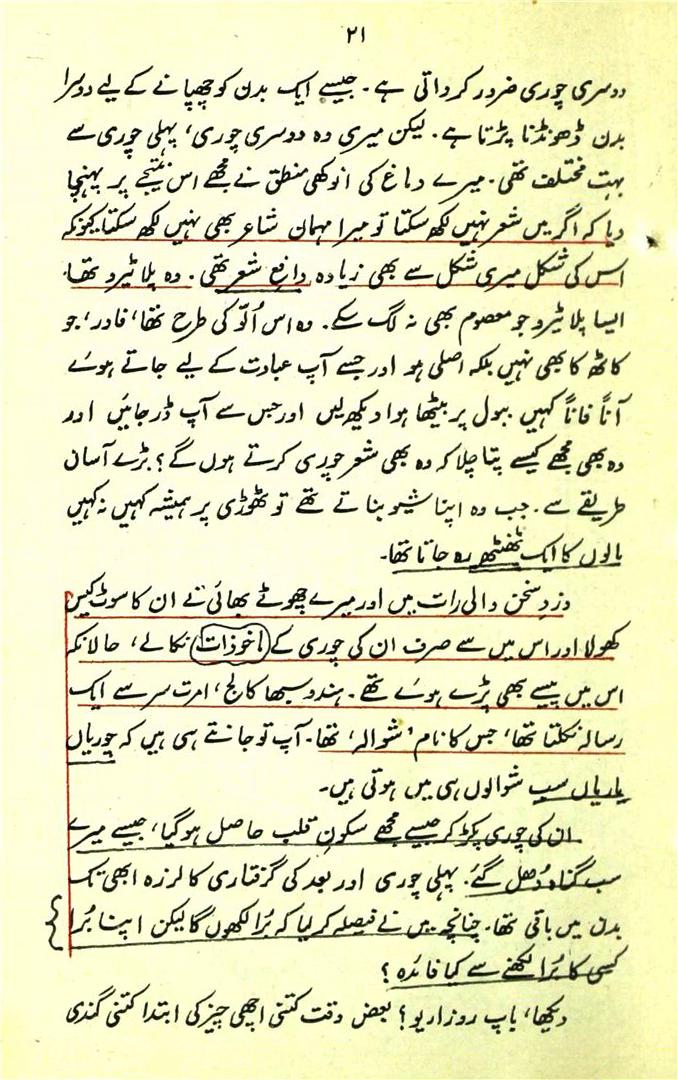 ۲۱
دوسری چوری ضرور کرداتی ہے۔ جیسے ایک بدن کو چھپانے کے لیے دوسرا
بدن ڈھونڈنا پڑتا ہے۔ لیکن میری وہ دوسری چوری، پہلی چوری سے
بہت مختلف تھی۔ میرے دماغ کی انوکھی منطق نے مجھے اس نتیجے پر پہنچا
دیا کہ اگر میں شعر نہیں لکھ سکتا تو میرا مہمان شاعر بھی نہیں لکھ سکتا کیونکہ
اس کی شکل میری شکل سے بھی زیادہ دافعِ شعر تھی۔ وہ پلاٹیرو تھا،
ایسا پلاٹیرو جو معصوم بھی نہ لگ سکے۔ وہ اس اُلّو کی طرح تھا، فادر، جو
کاٹھ کا بھی نہیں بلکہ اصلی ہو اور جسے آپ عبادت کے لیے جاتے ہوئے
آناً فاناً کہیں ببول پر بیٹھا ہوا دیکھ لیں اور جس سے آپ ڈر جائیں اور
وہ بھی مجھے کیسے پتا چلا کہ وہ بھی شعر چوری کرتے ہوں گے؟ بڑے آسان
طریقے سے۔ جب وہ اپنا شیو بناتے تھے تو ٹھوڑی پر ہمیشہ کہیں نہ کہیں
بالوں کا ایک ٹھنٹھ رہ جاتا تھا۔
دزدِ سخن والی رات میں اور میرے چھوٹے بھائی نے ان کا سوٹ کیس
کھولا اور اس میں سے صرف ان کی چوری کے ماخوذات نکالے، حالانکہ
اس میں پیسے بھی پڑے ہوئے تھے۔ ہندو سبھا کالج، امرت سر سے ایک
رسالہ نکلتا تھا، جس کا نام 'شوالہ' تھا۔ آپ تو جانتے ہی ہیں کہ چوریاں
یاریاں سب شوالوں ہی میں ہوتی ہیں۔
ان کی چوری پکڑ کر جیسے مجھے سکونِ قلب حاصل ہو گیا، جیسے میرے
سب گناہ دُھل گئے۔ پہلی چوری اور بعد کی گرفتاری کا لرزہ ابھی تک
بدن میں باقی تھا۔ چنانچہ میں نے فیصلہ کر لیا کہ بُرا لکھوں گا لیکن اپنا بُرا
کسی کا بُرا لکھنے سے کیا فائدہ؟
دیکھا، باپ روزاریو؟ بعض وقت کتنی اچھی چیز کی ابتدا کتنی گندی